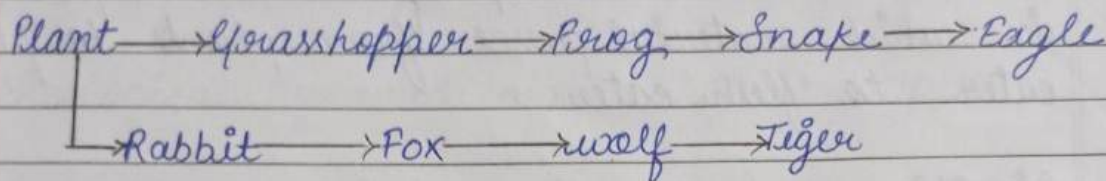 Plant → Grasshopper → Frog → Snake → Eagle
→ Rabbit → Fox → wolf → Tiger